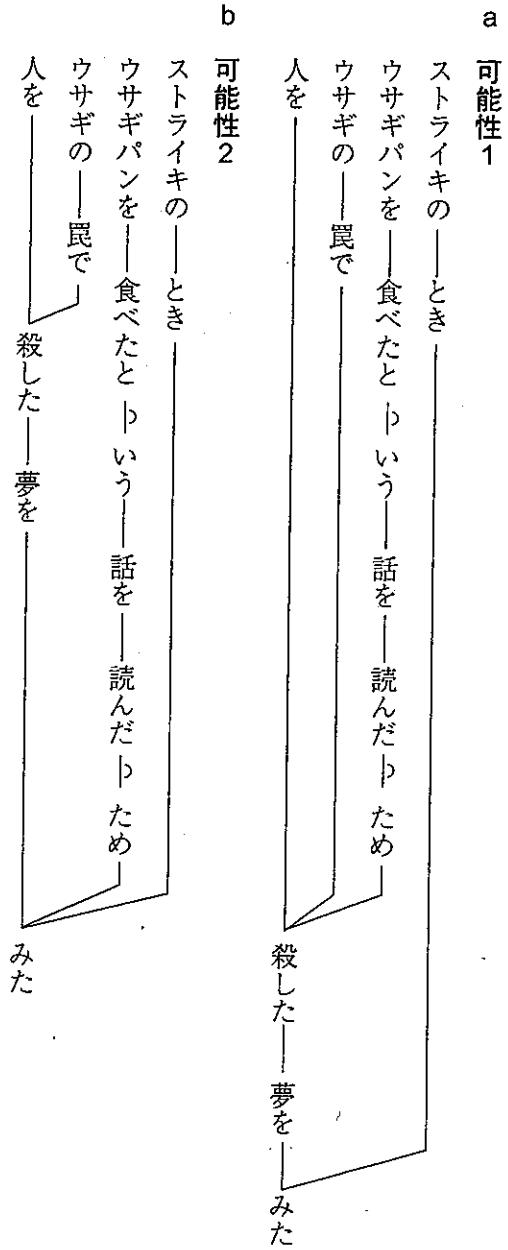 a
可能性1
ストライキの とき
ウサギパンを 食べたと いう 話を 読んだ ため
ウサギの 罠で
人を 殺した 夢を みた
b
可能性2
ストライキの とき
ウサギパンを 食べたと いう 話を 読んだ ため
ウサギの 罠で
人を 殺した 夢を みた